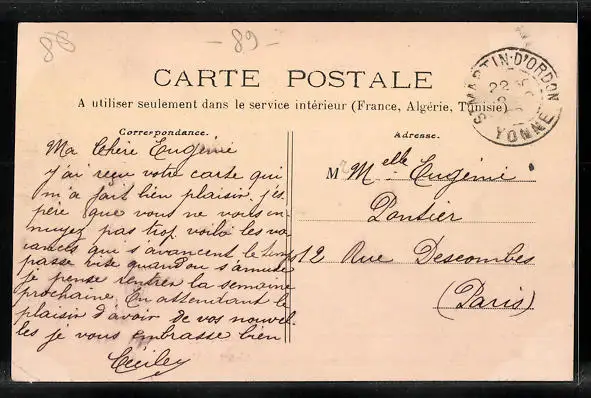 88
- 89 -
CARTE POSTALE
A utiliser seulement dans le service intérieur (France, Algérie, Tunisie)
ST MARTIN-D'ORDON
22
YONNE
Correspondance.
Ma Chère Eugénie
j'ai reçu votre carte qui
m'a fait bien plaisir. j'es
père que vous ne vous en-
nuyez pas trop. voilà les va-
cances qui s'avancent le temps
passe vite quand on s'amuse
je pense rentrer la semaine
prochaine. En attendant le
plaisir d'avoir de vos nouvel-
les je vous embrasse bien
Adresse.
M Melle Eugénie
Pontier
12 Rue Descombes
(Paris)